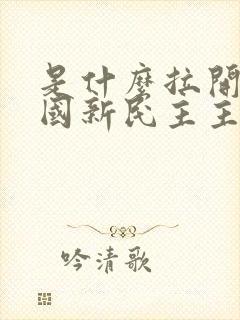 是什麼拉開
國新民主主
吟清歌